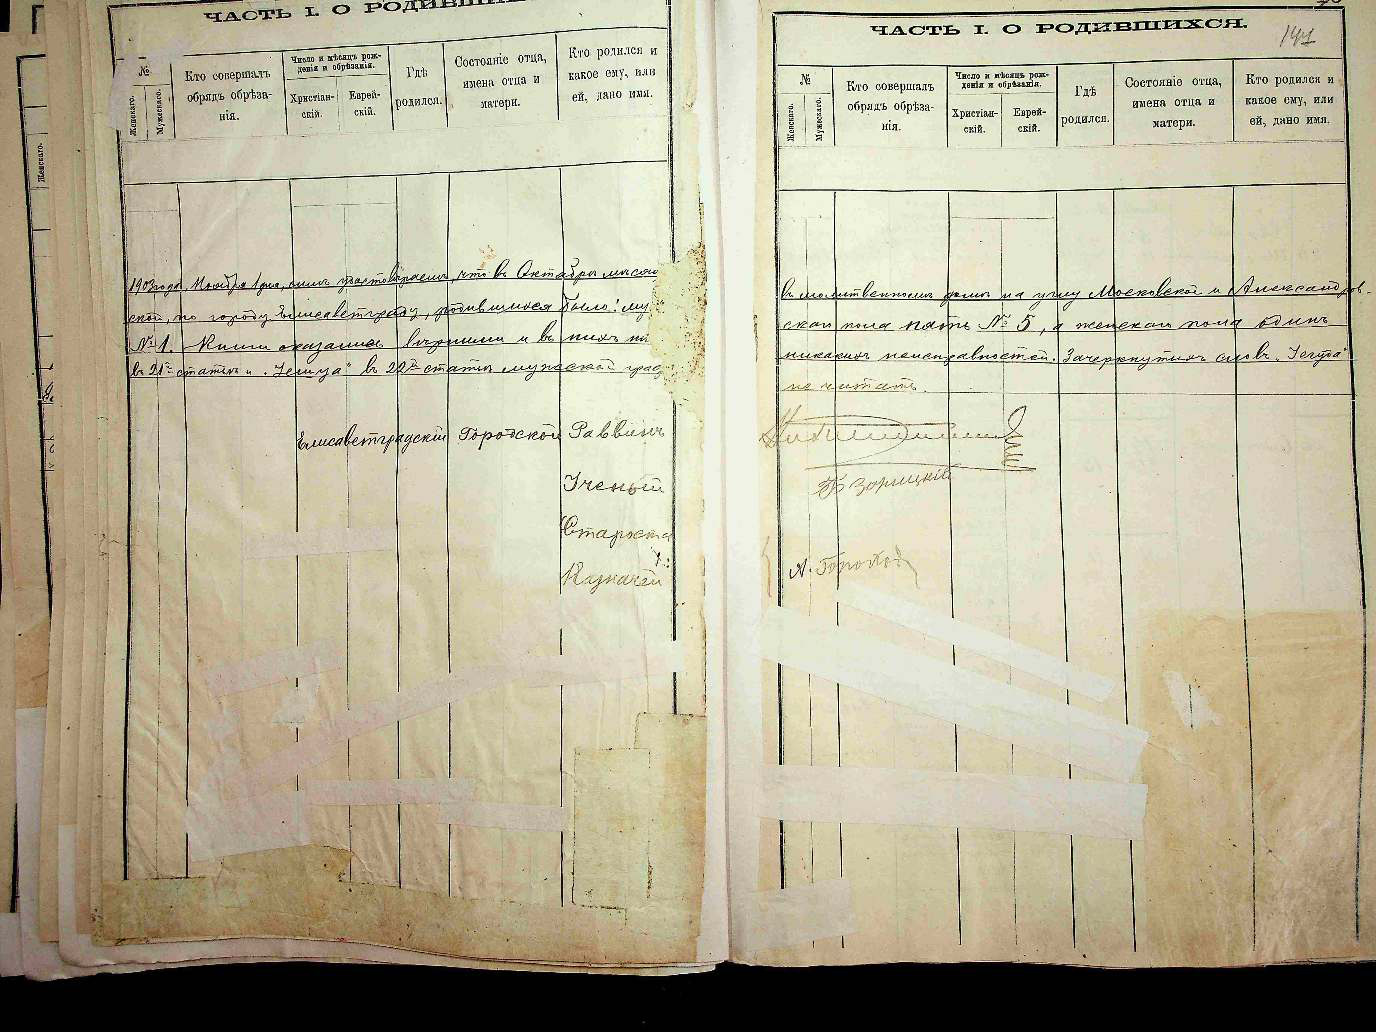 ЧАСТЬ I. О РОДИВШИХСЯ.
№
Женскаго.
Мужескаго.
Кто совершалъ обрядъ обрѣза-
нія.
Число и мѣсяцъ рож-
денія и обрѣзанія.
Христіан-
скій.
Еврей-
скій.
Гдѣ
родился.
Состояніе отца,
имена отца и
матери.
Кто родился и
какое ему, или
ей, дано имя.
1903 года, Ноября 1 дня, симъ удостовѣряемъ, что въ Октябрѣ мѣсяцѣ
ской, по городу Елисаветграду, родившихся было: му
№ 1. Книги оказались вѣрными и въ нихъ
въ 21й статьѣ и въ 22й статьѣ мужской
Елисаветградскій Городской Раввинъ
Ученый
Староста
Казначей
Женскаго.
ЧАСТЬ I. О РОДИВШИХСЯ.
141
№
Женскаго.
Мужескаго.
Кто совершалъ
обрядъ обрѣза-
нія.
Число и мѣсяцъ рож-
денія и обрѣзанія.
Христіан-
скій.
Еврей-
скій.
Гдѣ
родился.
Состояніе отца,
имена отца и
матери.
Кто родился и
какое ему, или
ей, дано имя.
въ молитвенномъ домѣ на углу Московской и Александров-
скаго пола пять № 5, а женскаго пола одинъ
никакихъ неисправностей. Зачеркнутыхъ словъ „Іегуда"
не читать.
Б Зорицкій
А. Гороход